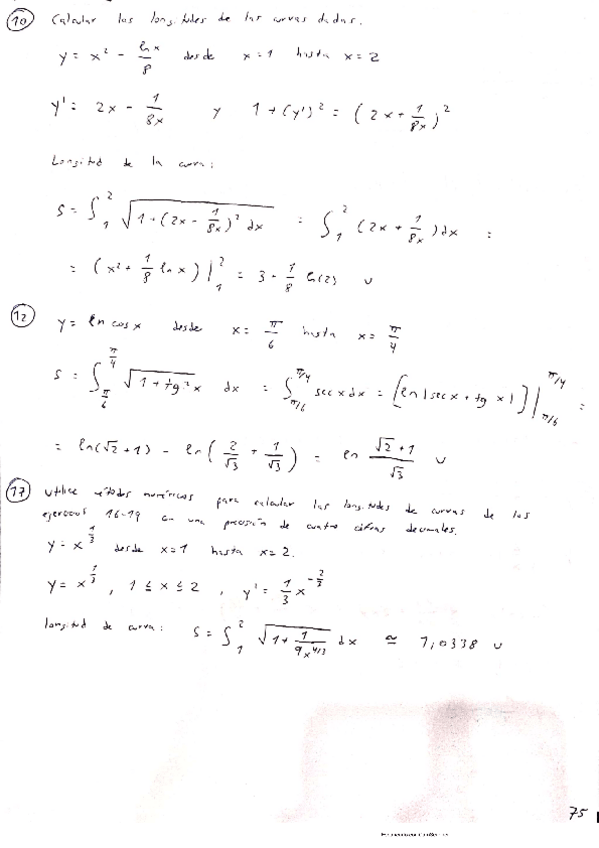 10 Calcular las longitudes de las curvas dadas.
y = x² - ln x / 8 desde x=1 hasta x=2
y' = 2x - 1/8x y 1+(y')² = (2x + 1/8x)²
Longitud de la curva:
S = ∫₁² √(1+(2x - 1/8x)² dx) = ∫₁² (2x + 1/8x) dx =
= (x² + 1/8 ln x) |₁² = 3 + 1/8 ln(2) u
12 y = ln cos x desde x = π/6 hasta x = π/4
S = ∫_{π/6}^{π/4} √(1+tg²x) dx = ∫_{π/6}^{π/4} sec x dx = [ln|sec x + tg x|] |_{π/6}^{π/4} =
= ln(√2+1) - ln(2/√3 + 1/√3) = ln (√2+1)/√3 u
17 Utilice métodos numéricos para calcular las longitudes de curvas de los
ejercicios 16-19 con una precisión de cuatro cifras decimales.
y = x^{1/3} desde x=1 hasta x=2.
y = x^{1/3}, 1 ≤ x ≤ 2, y' = 1/3 x^{-2/3}
longitud de curva: S = ∫₁² √(1 + 1/(9x^{4/3})) dx ≅ 1,0338 u
75